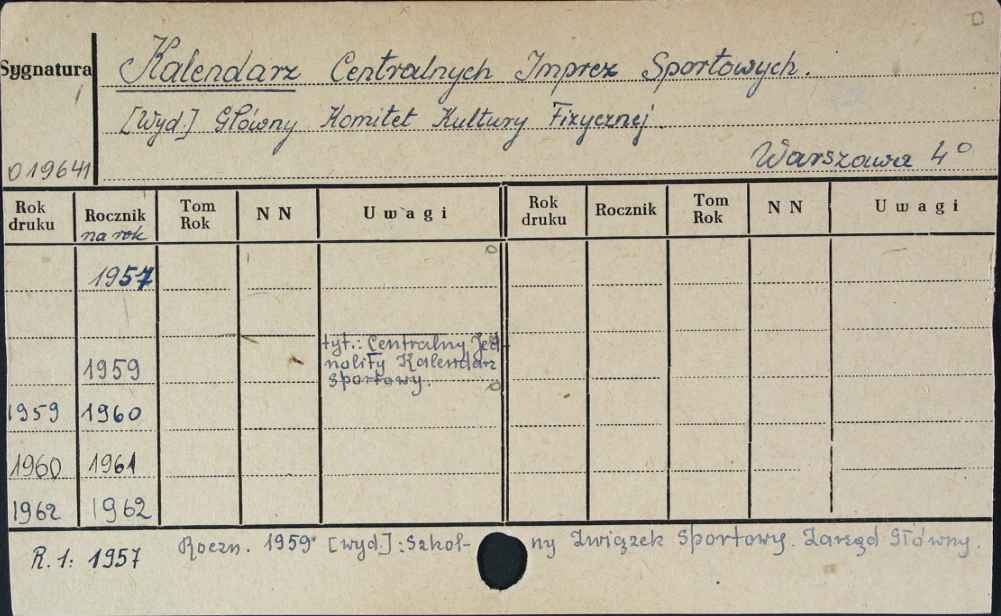 Sygnatura
Kalendarz Centralnych Imprez Sportowych.
[Wyd.] Główny Komitet Kultury Fizycznej.
Warszawa 4°
019641
Rok druku Rocznik na rok Tom Rok NN Uwagi Rok druku Rocznik Tom Rok NN Uwagi
1957
tyt.: Centralny Jed-
nolity Kalendarz
1959 Sportowy.
1959 1960
1960 1961
1962 1962
R. 1: 1957 Roczn. 1959 [wyd.]: Szkol- ny Związek Sportowy. Zarząd Główny.